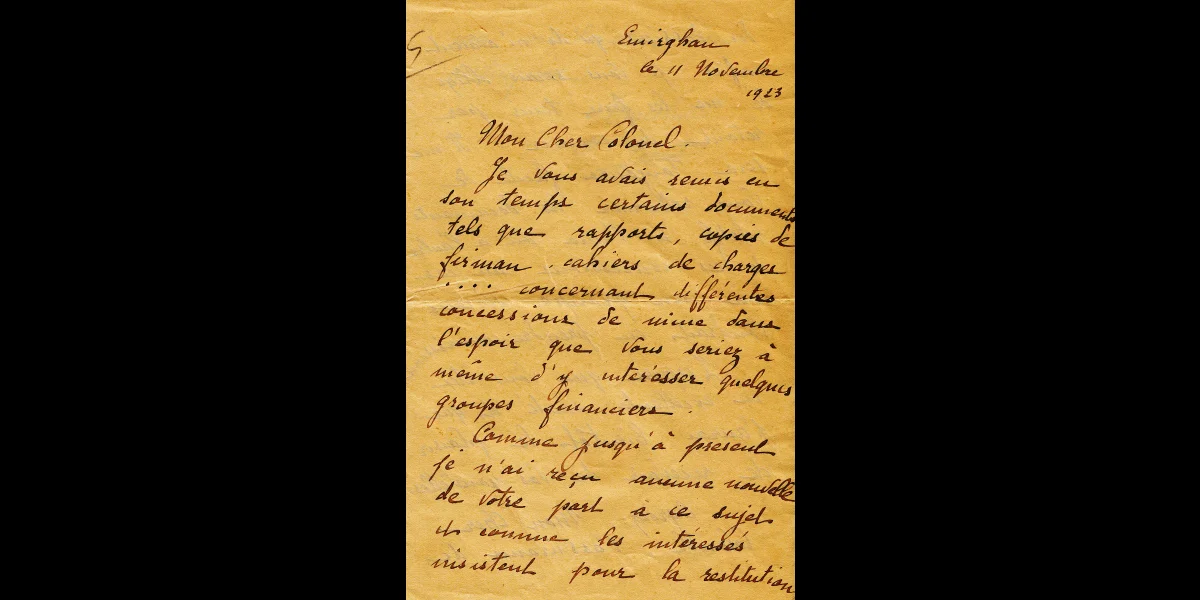 Emirghan
le 11 Novembre
1923
Mon Cher Colonel.
Je vous avais remis en
son temps certains documents
tels que rapports, copies de
firman, cahiers de charges
.... concernant différentes
concessions de mine dans
l'espoir que vous seriez à
même d'y intéresser quelques
groupes financiers.
Comme jusqu'à présent
je n'ai reçu aucune nouvelle
de votre part à ce sujet
et comme les intéressés
insistent pour la restitution